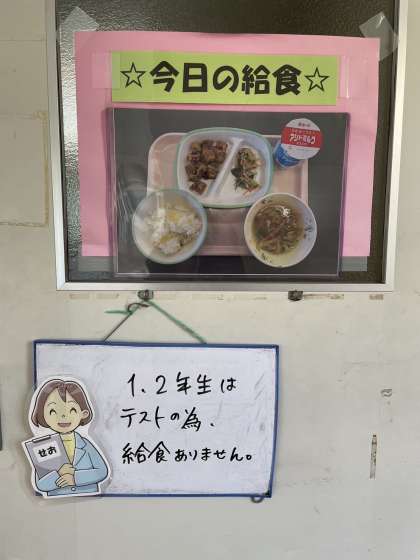 ☆今日の給食☆
アシドミルク
1、2年生は
テストの為、
給食ありません。
せお